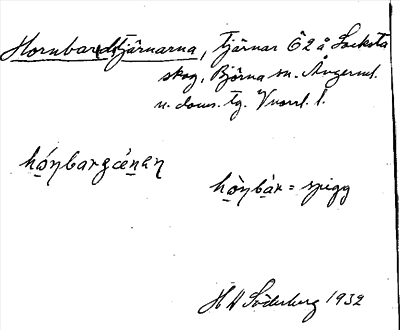 Hornbarstjärnarna, tjärnar Ö 2 å Locksta
skog, Björna sn. Ångerml.
n. doms. tg. Vnorrl. l.
hǫ́ṇbargǽnan
hǫ̀ṇbạ̀r = spigg
H W Söderberg 1932